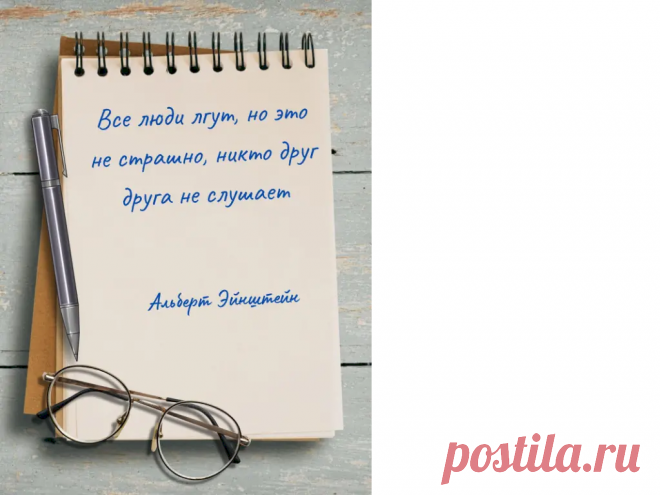 Все люди лгут, но это
не страшно, никто друг
друга не слушает
Альберт Эйнштейн
postila.ru